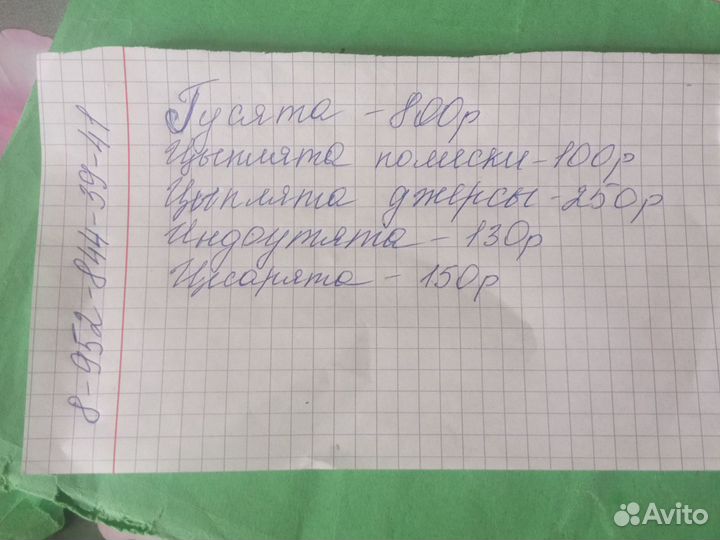 Гусята - 800р
Цыплята помески - 100р
Цыплята джерсы - 250р
Индоутята - 130р
Цесарята - 150р
8-952-844-39-41
Avito